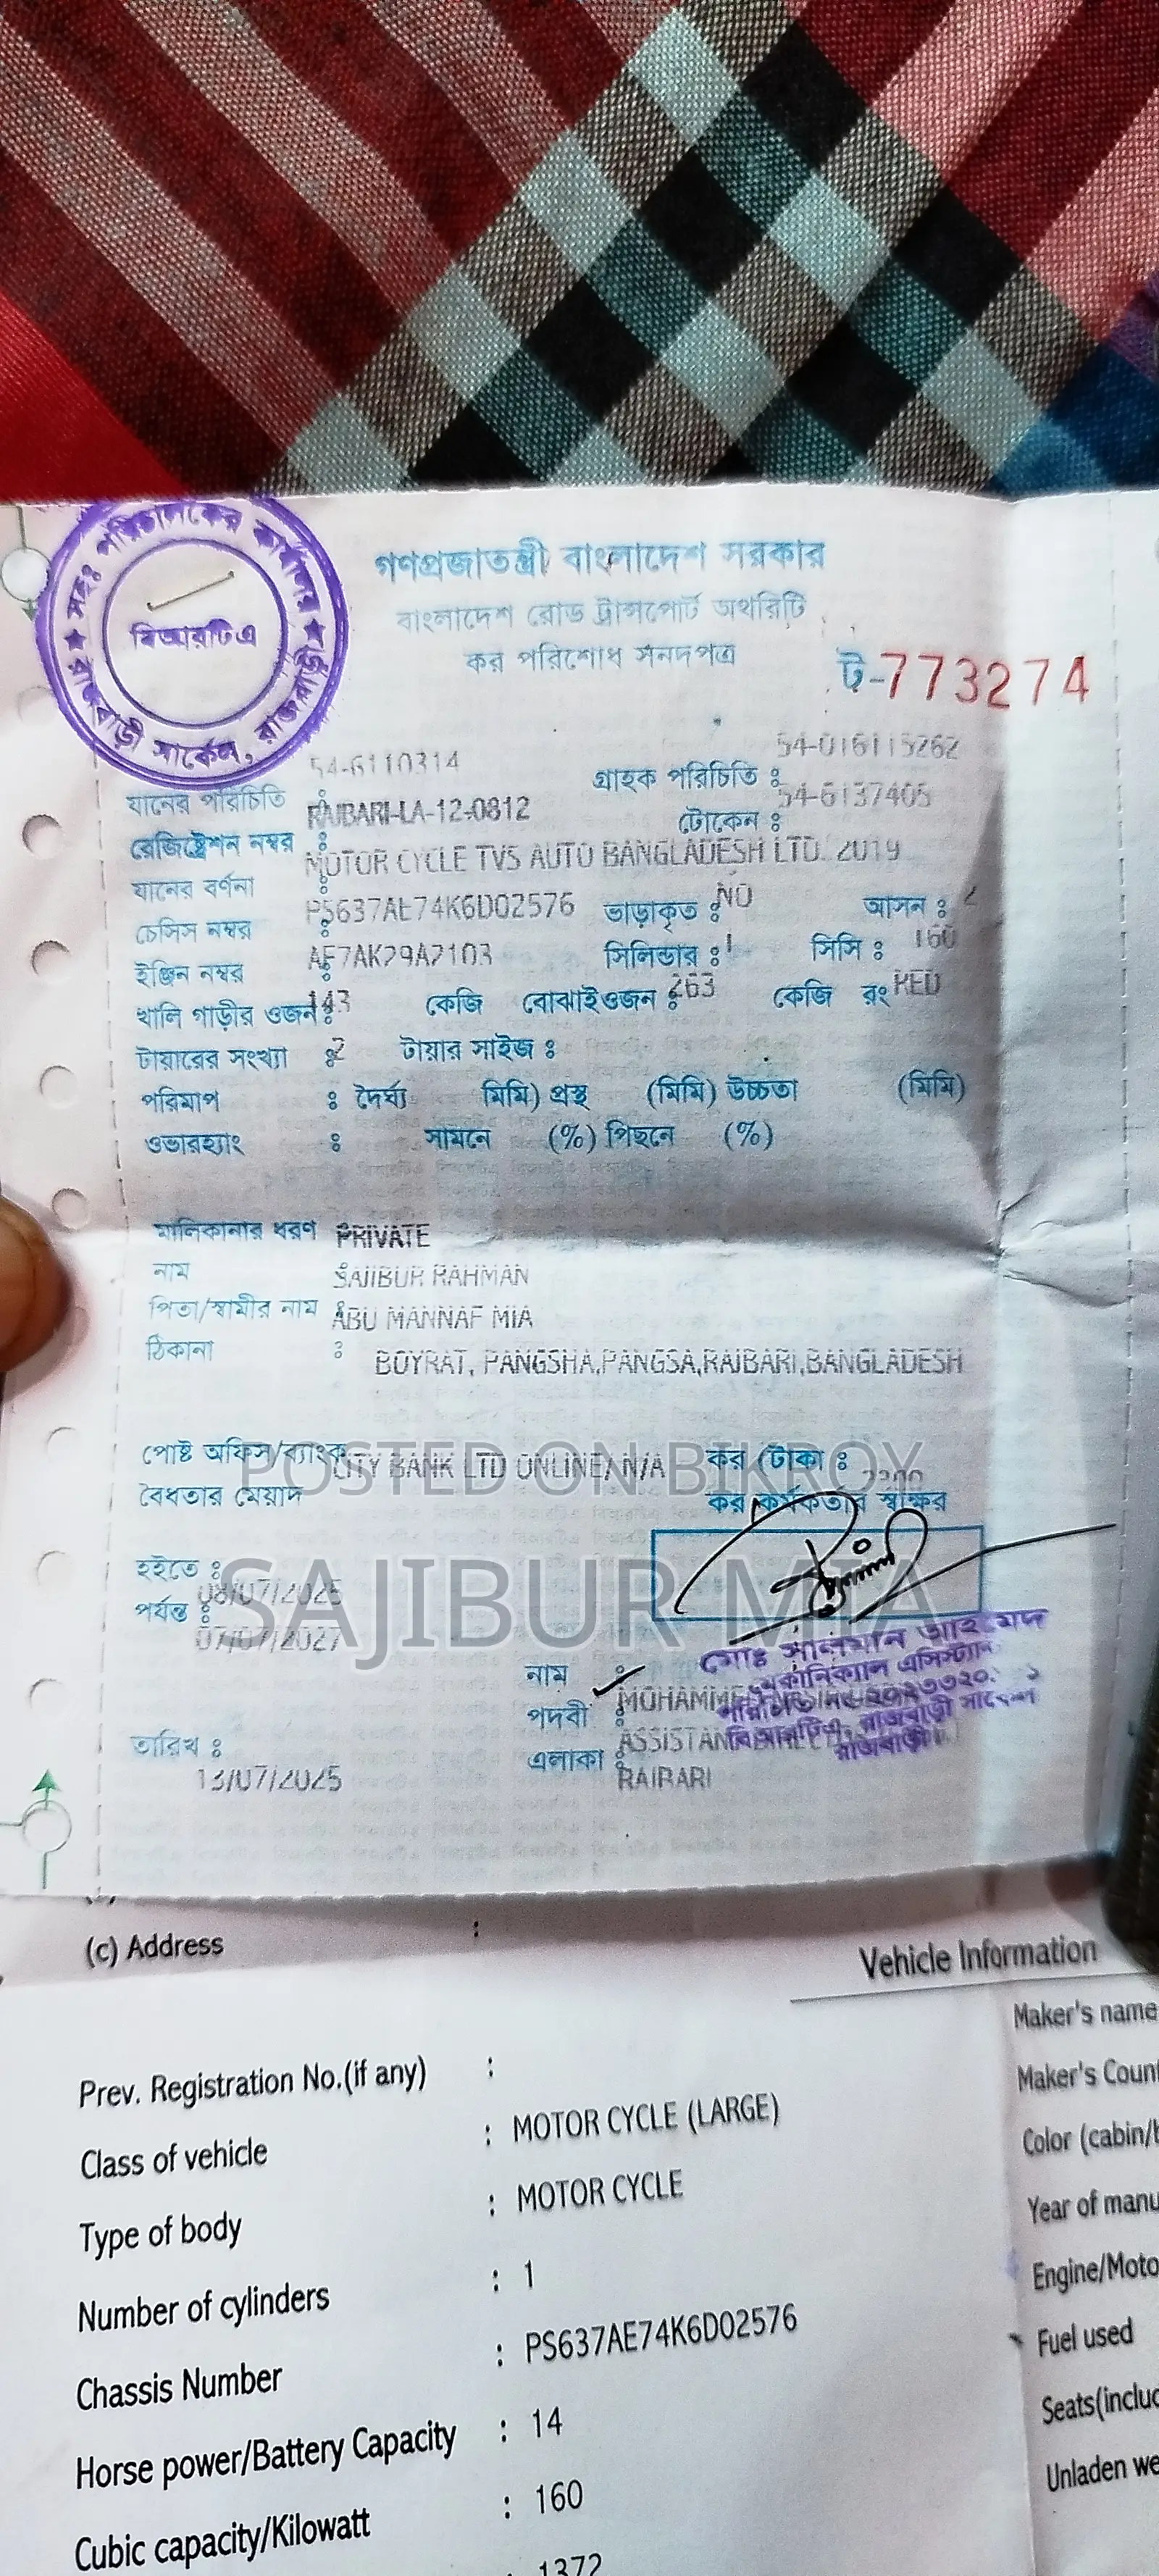 সহঃ পরিচালকের কার্যালয়
বিআরটিএ
রাজবাড়ী সার্কেল, রাজবাড়ী
গণপ্রজাতন্ত্রী বাংলাদেশ সরকার
বাংলাদেশ রোড ট্রান্সপোর্ট অথরিটি
কর পরিশোধ সনদপত্র
ট-773274
যানের পরিচিতি : 54-6110314 গ্রাহক পরিচিতি : 54-016115262
রেজিষ্ট্রেশন নম্বর : RAJBARI-LA-12-0812 টোকেন : 54-6137405
যানের বর্ণনা : MOTOR CYCLE TVS AUTO BANGLADESH LTD. 2019
চেসিস নম্বর : PS637AE74K6D02576 ভাড়াকৃত : NO আসন : 2
ইঞ্জিন নম্বর : AE7AK29A2103 সিলিন্ডার : 1 সিসি : 160
খালি গাড়ীর ওজন : 143 কেজি বোঝাই ওজন : 263 কেজি রং RED
টায়ারের সংখ্যা : 2 টায়ার সাইজ :
পরিমাপ : দৈর্ঘ্য মিমি) প্রস্থ (মিমি) উচ্চতা (মিমি)
ওভারহ্যাং : সামনে (%) পিছনে (%)
মালিকানার ধরণ PRIVATE
নাম : SAJIBUR RAHMAN
পিতা/স্বামীর নাম : ABU MANNAF MIA
ঠিকানা : BOYRAT, PANGSHA,PANGSA,RAJBARI,BANGLADESH
পোষ্ট অফিস/ব্যাংক CITY BANK LTD ONLINE/N/A কর (টাকা : 2300
POSTED ON BIKROY
বৈধতার মেয়াদ কর কর্মকর্তার স্বাক্ষর
হইতে : 08/07/2025
SAJIBUR MIA
পর্যন্ত : 07/07/2027
মোঃ সালমান আহমেদ
মেকানিক্যাল এসিস্ট্যান্ট
বিআরটিএ, রাজবাড়ী সার্কেল
রাজবাড়ী।
নাম :
পদবী :
এলাকা : RAJBARI
তারিখ : 13/07/2025
(c) Address :
Vehicle Information
Prev. Registration No.(if any) :
Class of vehicle : MOTOR CYCLE (LARGE)
Type of body : MOTOR CYCLE
Number of cylinders : 1
Chassis Number : PS637AE74K6D02576
Horse power/Battery Capacity : 14
Cubic capacity/Kilowatt : 160
: 1372
Maker's name
Maker's Coun
Color (cabin/
Year of manu
Engine/Moto
Fuel used
Seats(includ
Unladen we